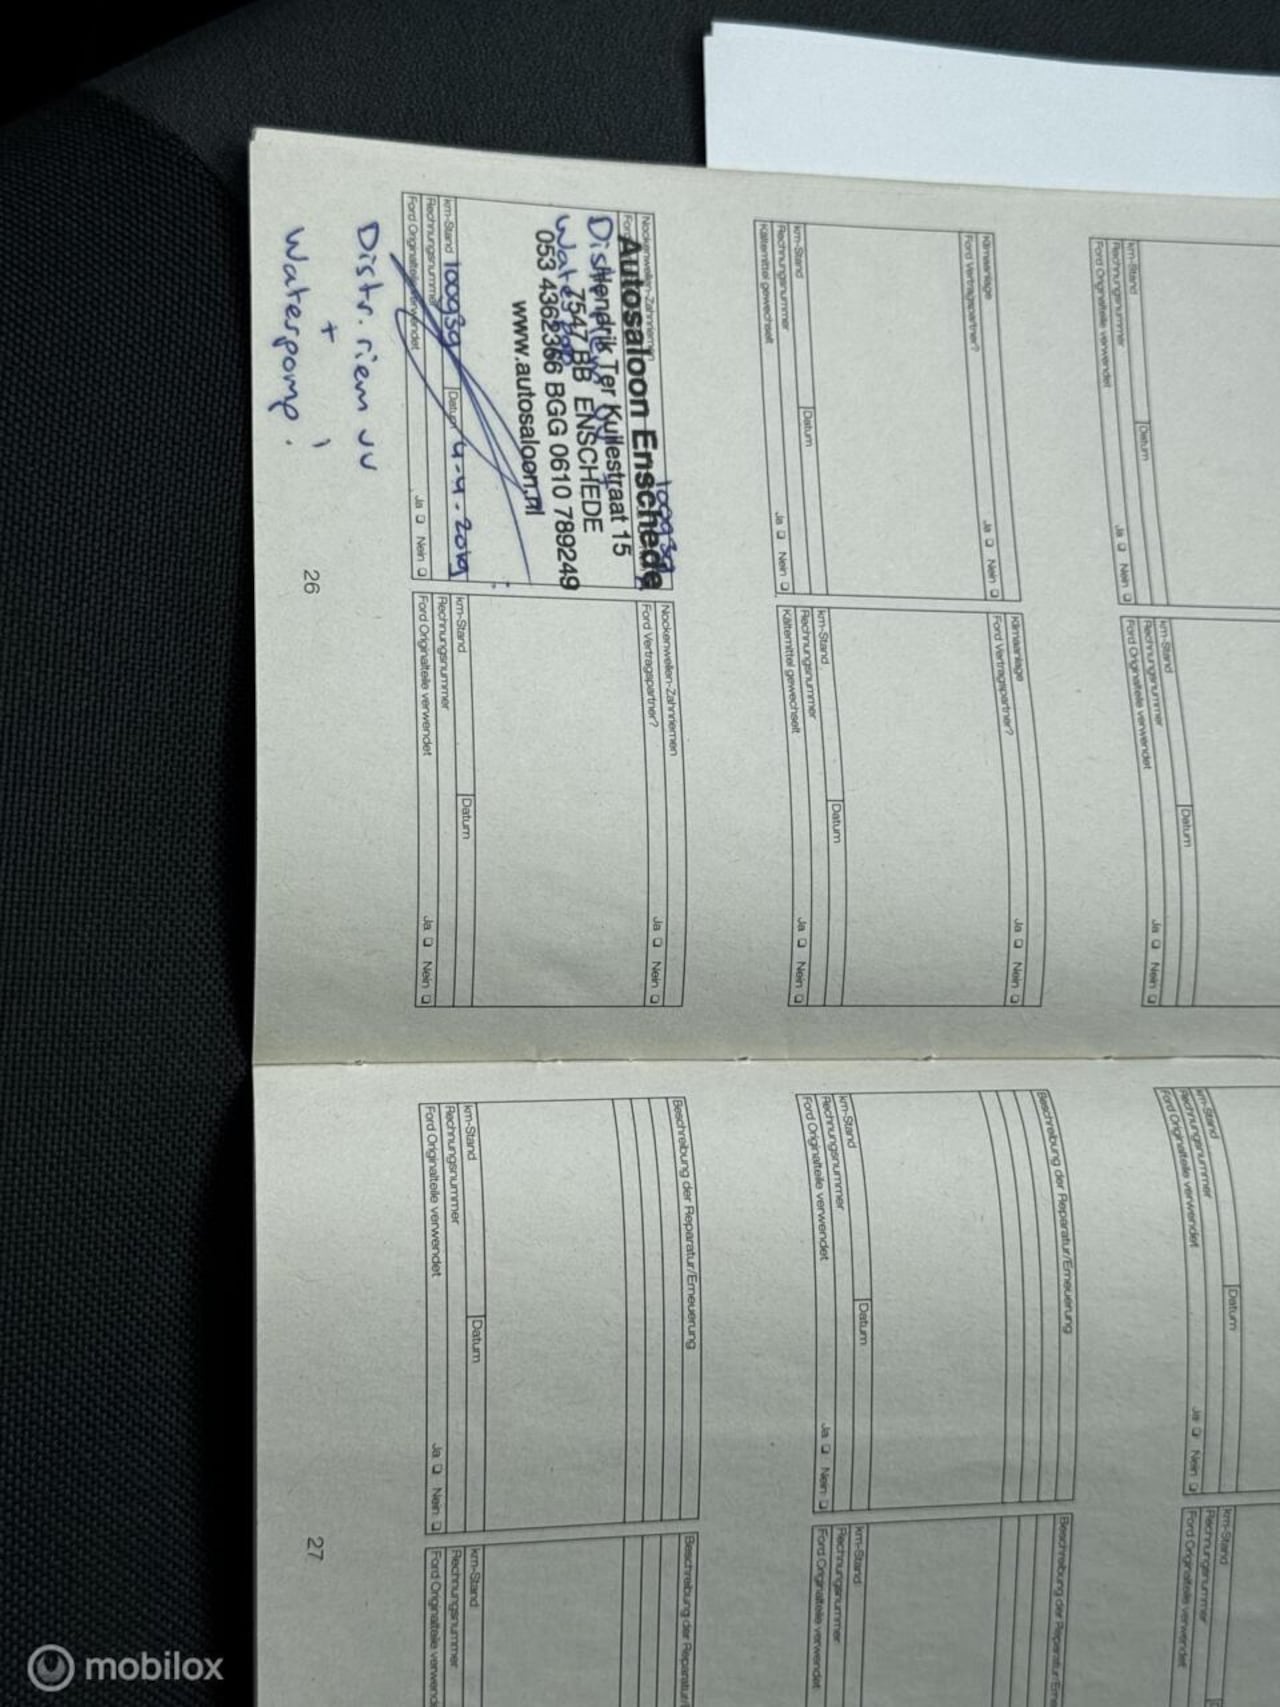 Nockenwellen-Zahnriemen
100939
Autosaloon Enschede
Hendrik Ter Kuilestraat 15
7547 BB ENSCHEDE
053 4362366 BGG 0610 789249
www.autosaloon.nl
km-Stand 100939 Datum 4-4-2019
Rechnungsnummer
Ford Originalteile verwendet Ja Nein
Distr. riem vv
+
Waterpomp!
26
Nockenwellen-Zahnriemen
Ford Vertragspartner? Ja Nein
km-Stand Datum
Rechnungsnummer
Ford Originalteile verwendet Ja Nein
Klimaanlage
Ford Vertragspartner? Ja Nein
km-Stand Datum
Rechnungsnummer
Kältemittel gewechselt Ja Nein
Klimaanlage
Ford Vertragspartner? Ja Nein
km-Stand Datum
Rechnungsnummer
Kältemittel gewechselt Ja Nein
km-Stand Datum
Rechnungsnummer
Ford Originalteile verwendet Ja Nein
km-Stand Datum
Rechnungsnummer
Ford Originalteile verwendet Ja Nein
km-Stand Datum
Rechnungsnummer
Ford Originalteile verwendet Ja Nein
km-Stand
Rechnungsnummer
Ford Originalteile verwendet
Beschreibung der Reparatur/Erneuerung
km-Stand Datum
Rechnungsnummer
Ford Originalteile verwendet Ja Nein
Beschreibung der Reparatur/Erne
km-Stand
Rechnungsnummer
Ford Originalteile verwendet
Beschreibung der Reparatur/Erneuerung
km-Stand Datum
Rechnungsnummer
Ford Originalteile verwendet Ja Nein
Beschreibung der Reparatur/
km-Stand
Rechnungsnummer
Ford Originalteile verwend
27
mobilox